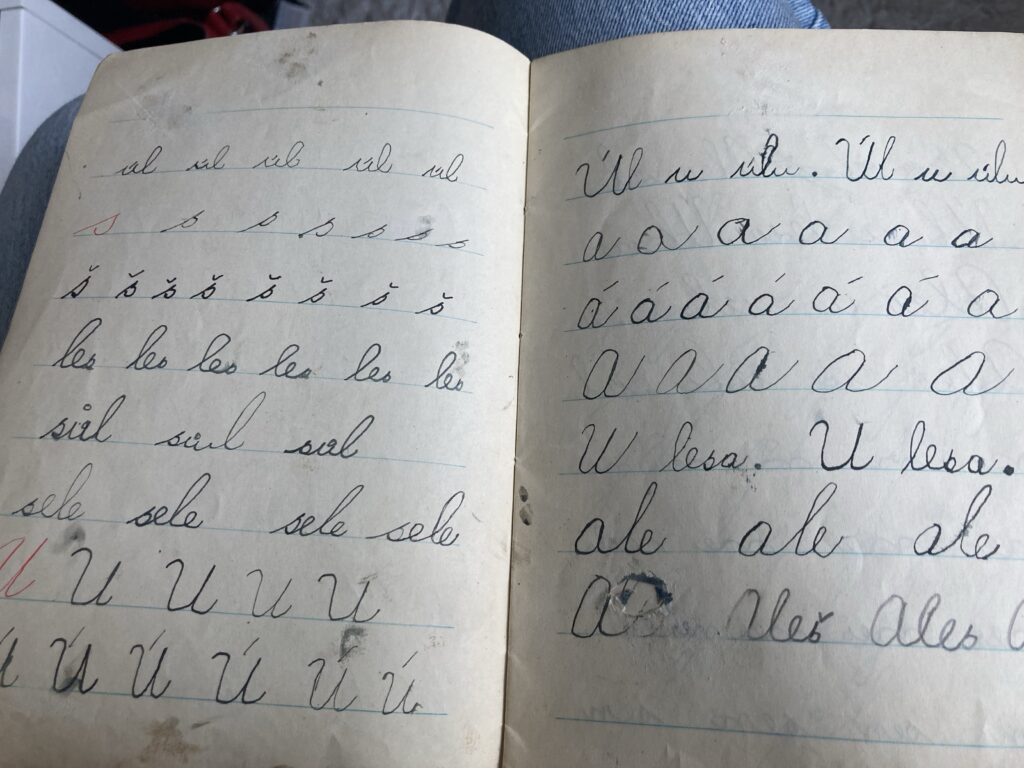 úl úl úl úl úl
s s s s s s s
š š š š š š š š
les les les les les les
sůl sůl sůl
sele sele sele sele
U U U U U
Ú Ú Ú Ú Ú Ú
Úl u úlu. Úl u úlu
a a a a a a
á á á á á á a
A A A A A
U lesa. U lesa.
ale ale ale
A Aleš Ales